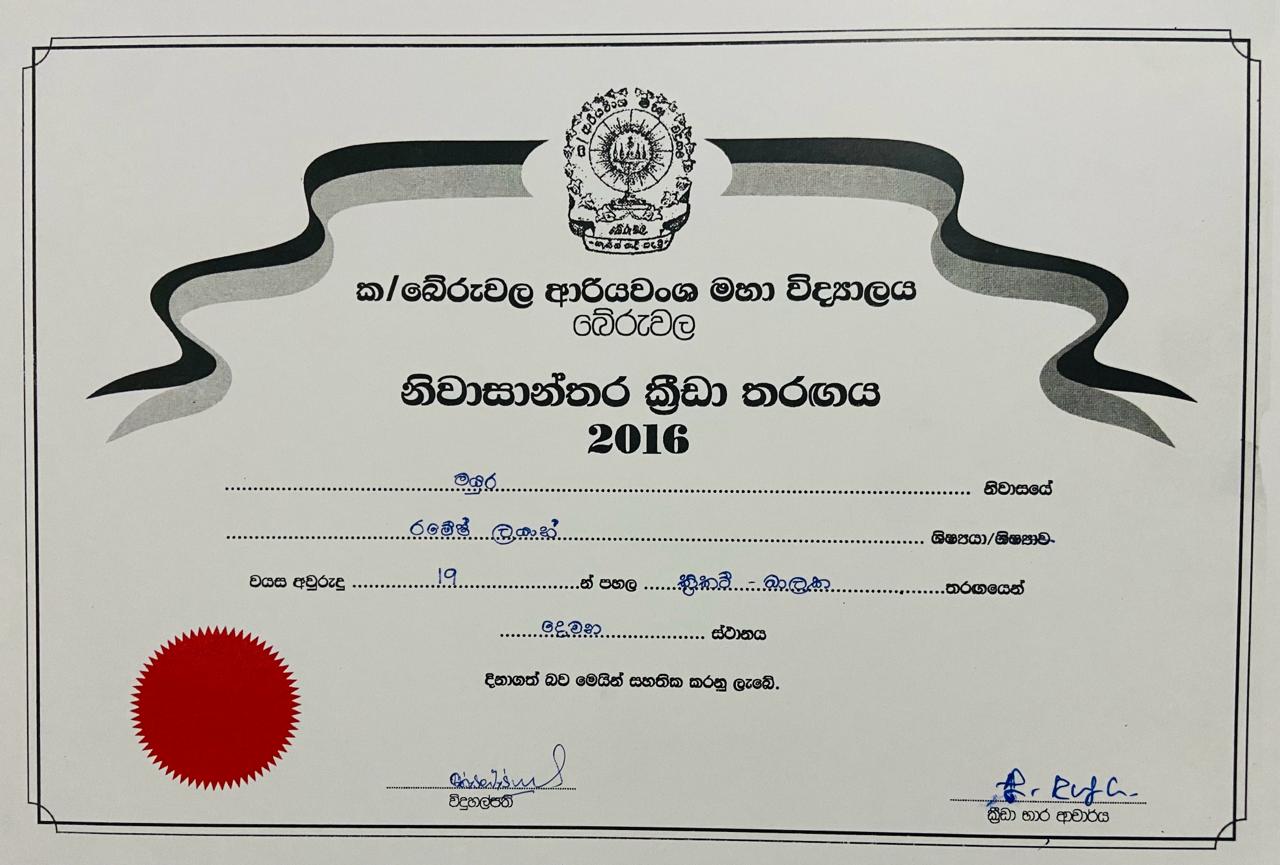 ක/බේරුවල ආරියවංශ මහා විද්‍යාලය
බේරුවල
නිවාසාන්තර ක්‍රීඩා තරඟය
2016
මයුර නිවාසයේ
රමේෂ් ලක්‍ෂාන් ශිෂ්‍යයා/ශිෂ්‍යාව
වයස අවුරුදු 19 න් පහල ක්‍රිකට් - බාලක තරඟයෙන්
දෙවන ස්ථානය
දිනාගත් බව මෙයින් සහතික කරනු ලැබේ.
විදුහල්පති
ක්‍රීඩා භාර ආචාර්ය